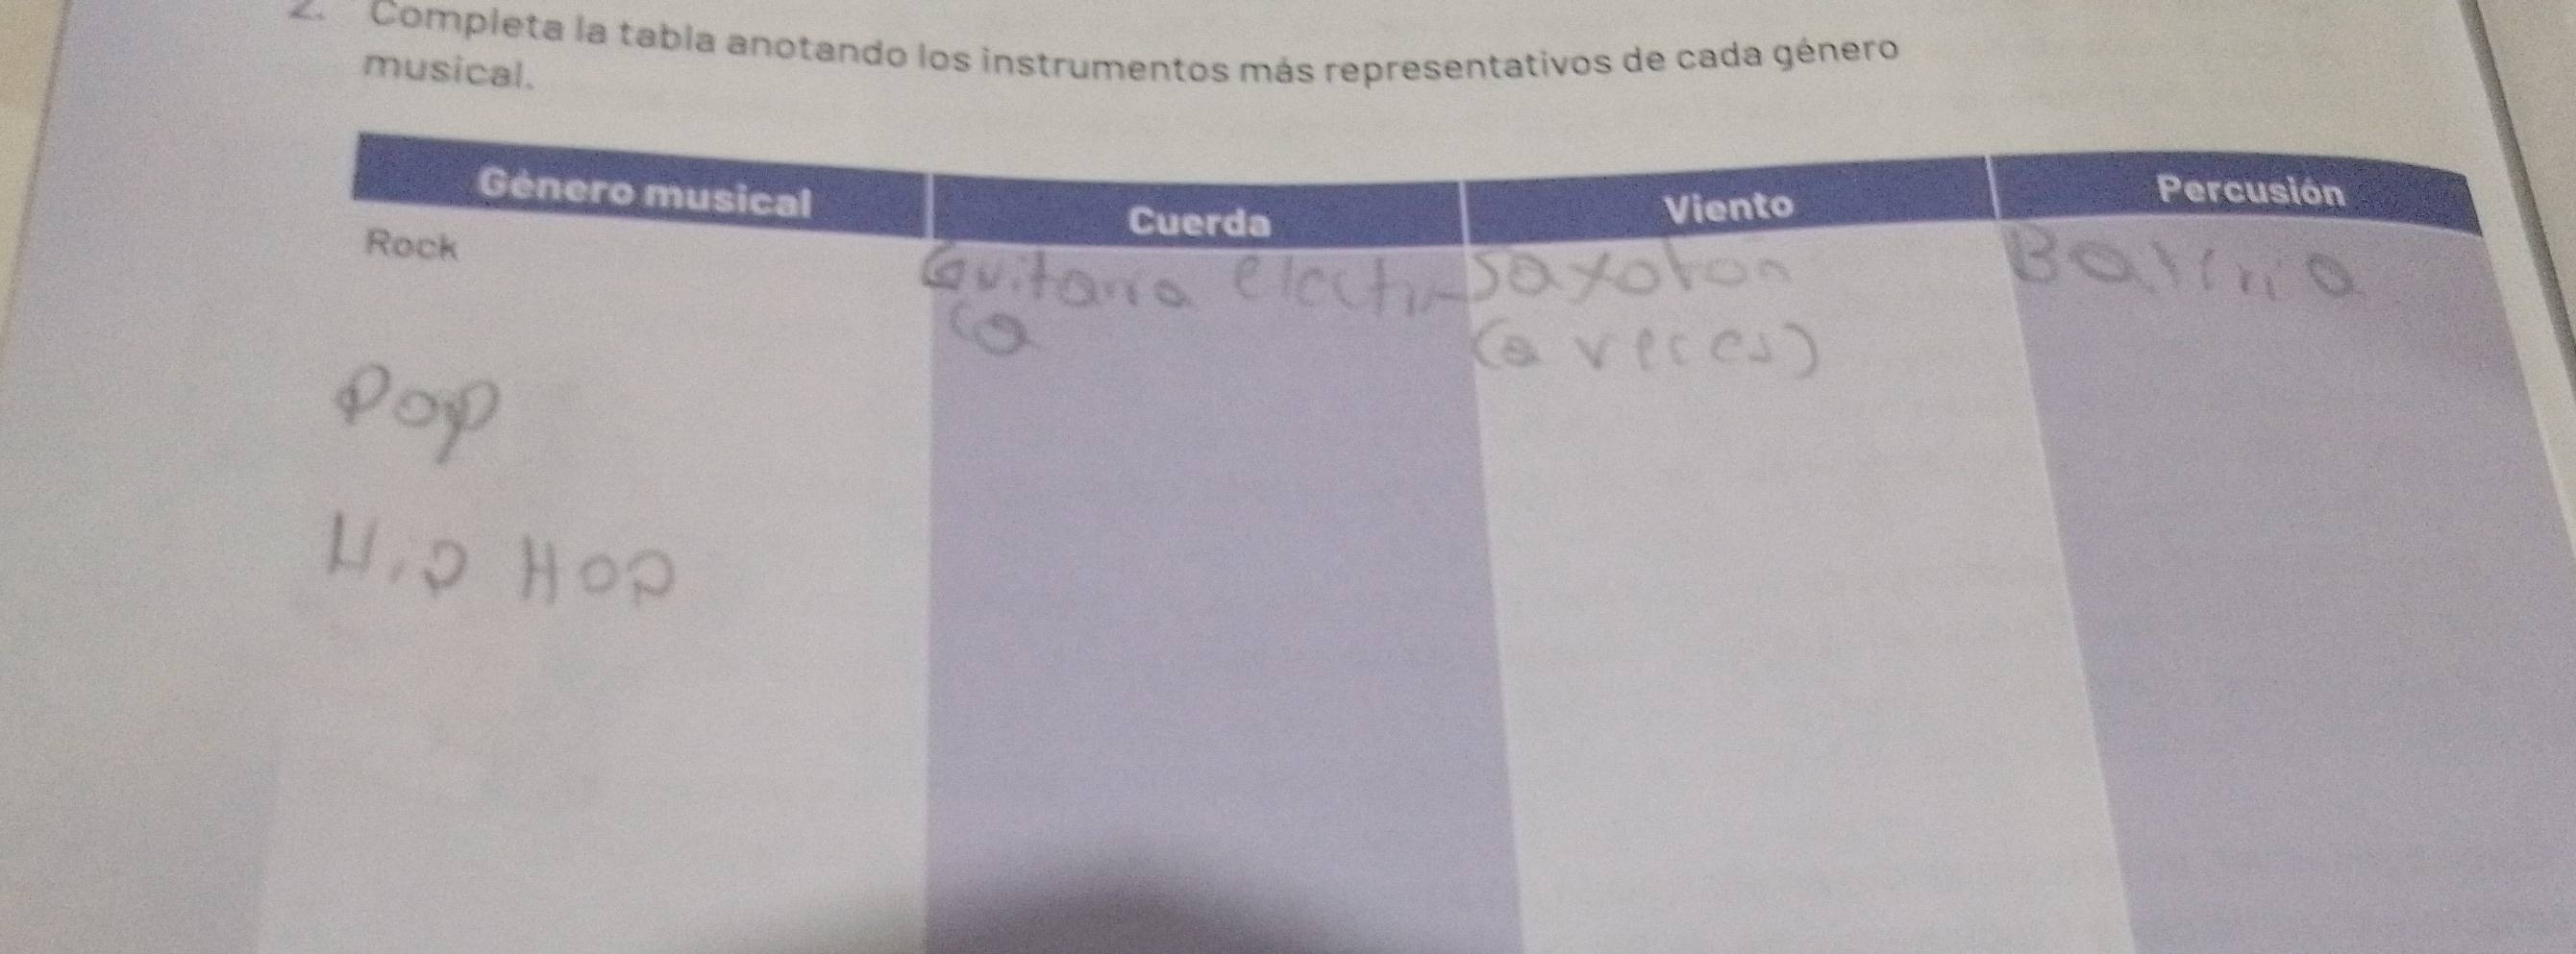 2. Completa la tabla anotando los instrumentos más representativos de cada género
musical.
Género musical Cuerda Viento Percusión
Rock Guitarra electri- Saxofon Bateria
ca (a veces)
Pop
Hip Hop